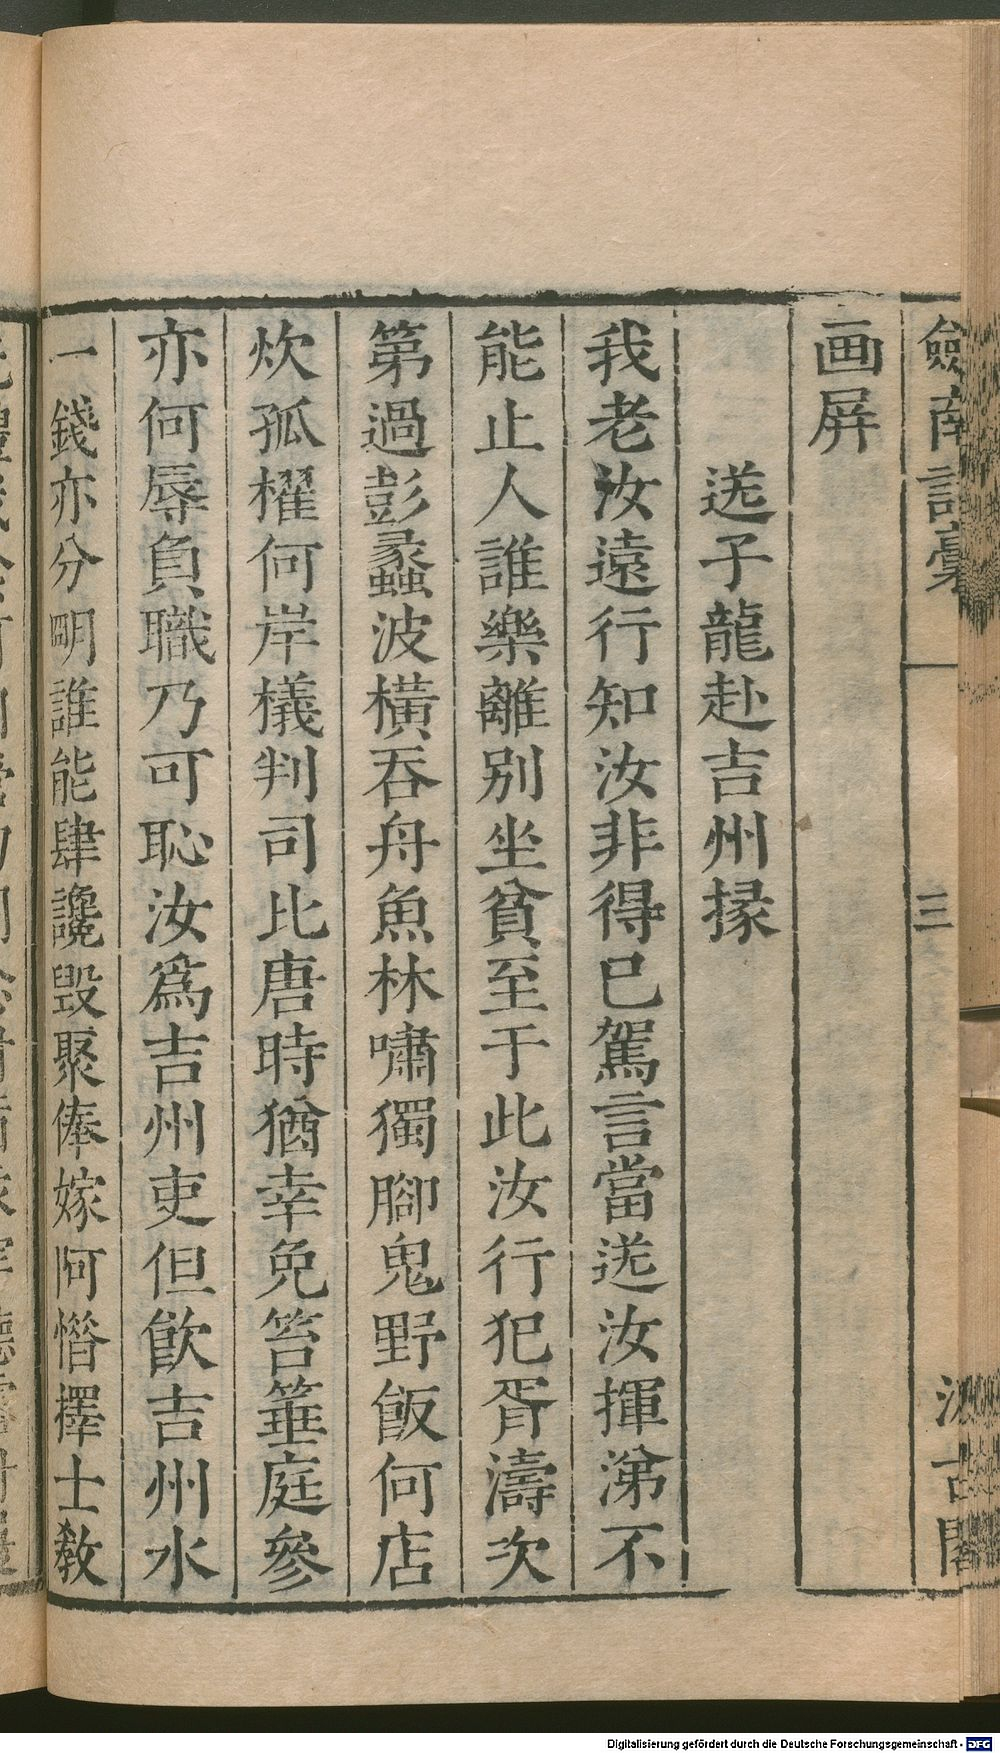 劒南詩藁
三
汲古閣
画屏
送子龍赴吉州掾
我老汝遠行知汝非得已駕言當送汝揮涕不
能止人誰樂離别坐貧至于此汝行犯胥濤次
第過彭蠡波橫吞舟魚林嘯獨腳鬼野飯何店
炊孤櫂何岸檥判司比唐時猶幸免笞箠庭參
亦何辱負職乃可恥汝爲吉州吏但飮吉州水
一錢亦分明誰能肆讒毀聚俸嫁阿惜擇士敎
Digitalisierung gefördert durch die Deutsche Forschungsgemeinschaft - DFG